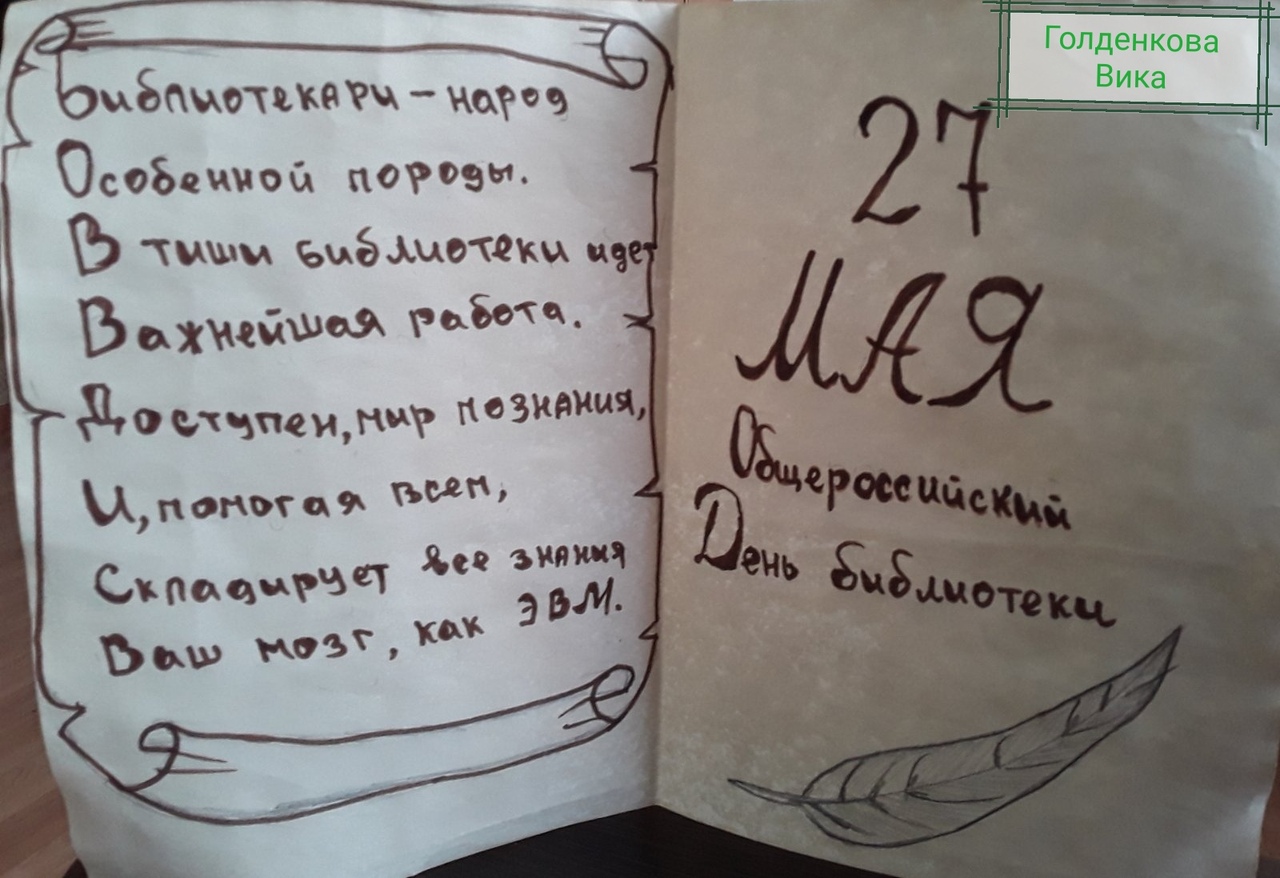 Библиотекари - народ
Особенной породы.
В тиши библиотеки идет
Важнейшая работа.
Доступен, мир познания,
И, помогая всем,
Складирует все знания
Ваш мозг, как ЭВМ.
Голденкова
Вика
27
МАЯ
Общероссийский
День библиотеки